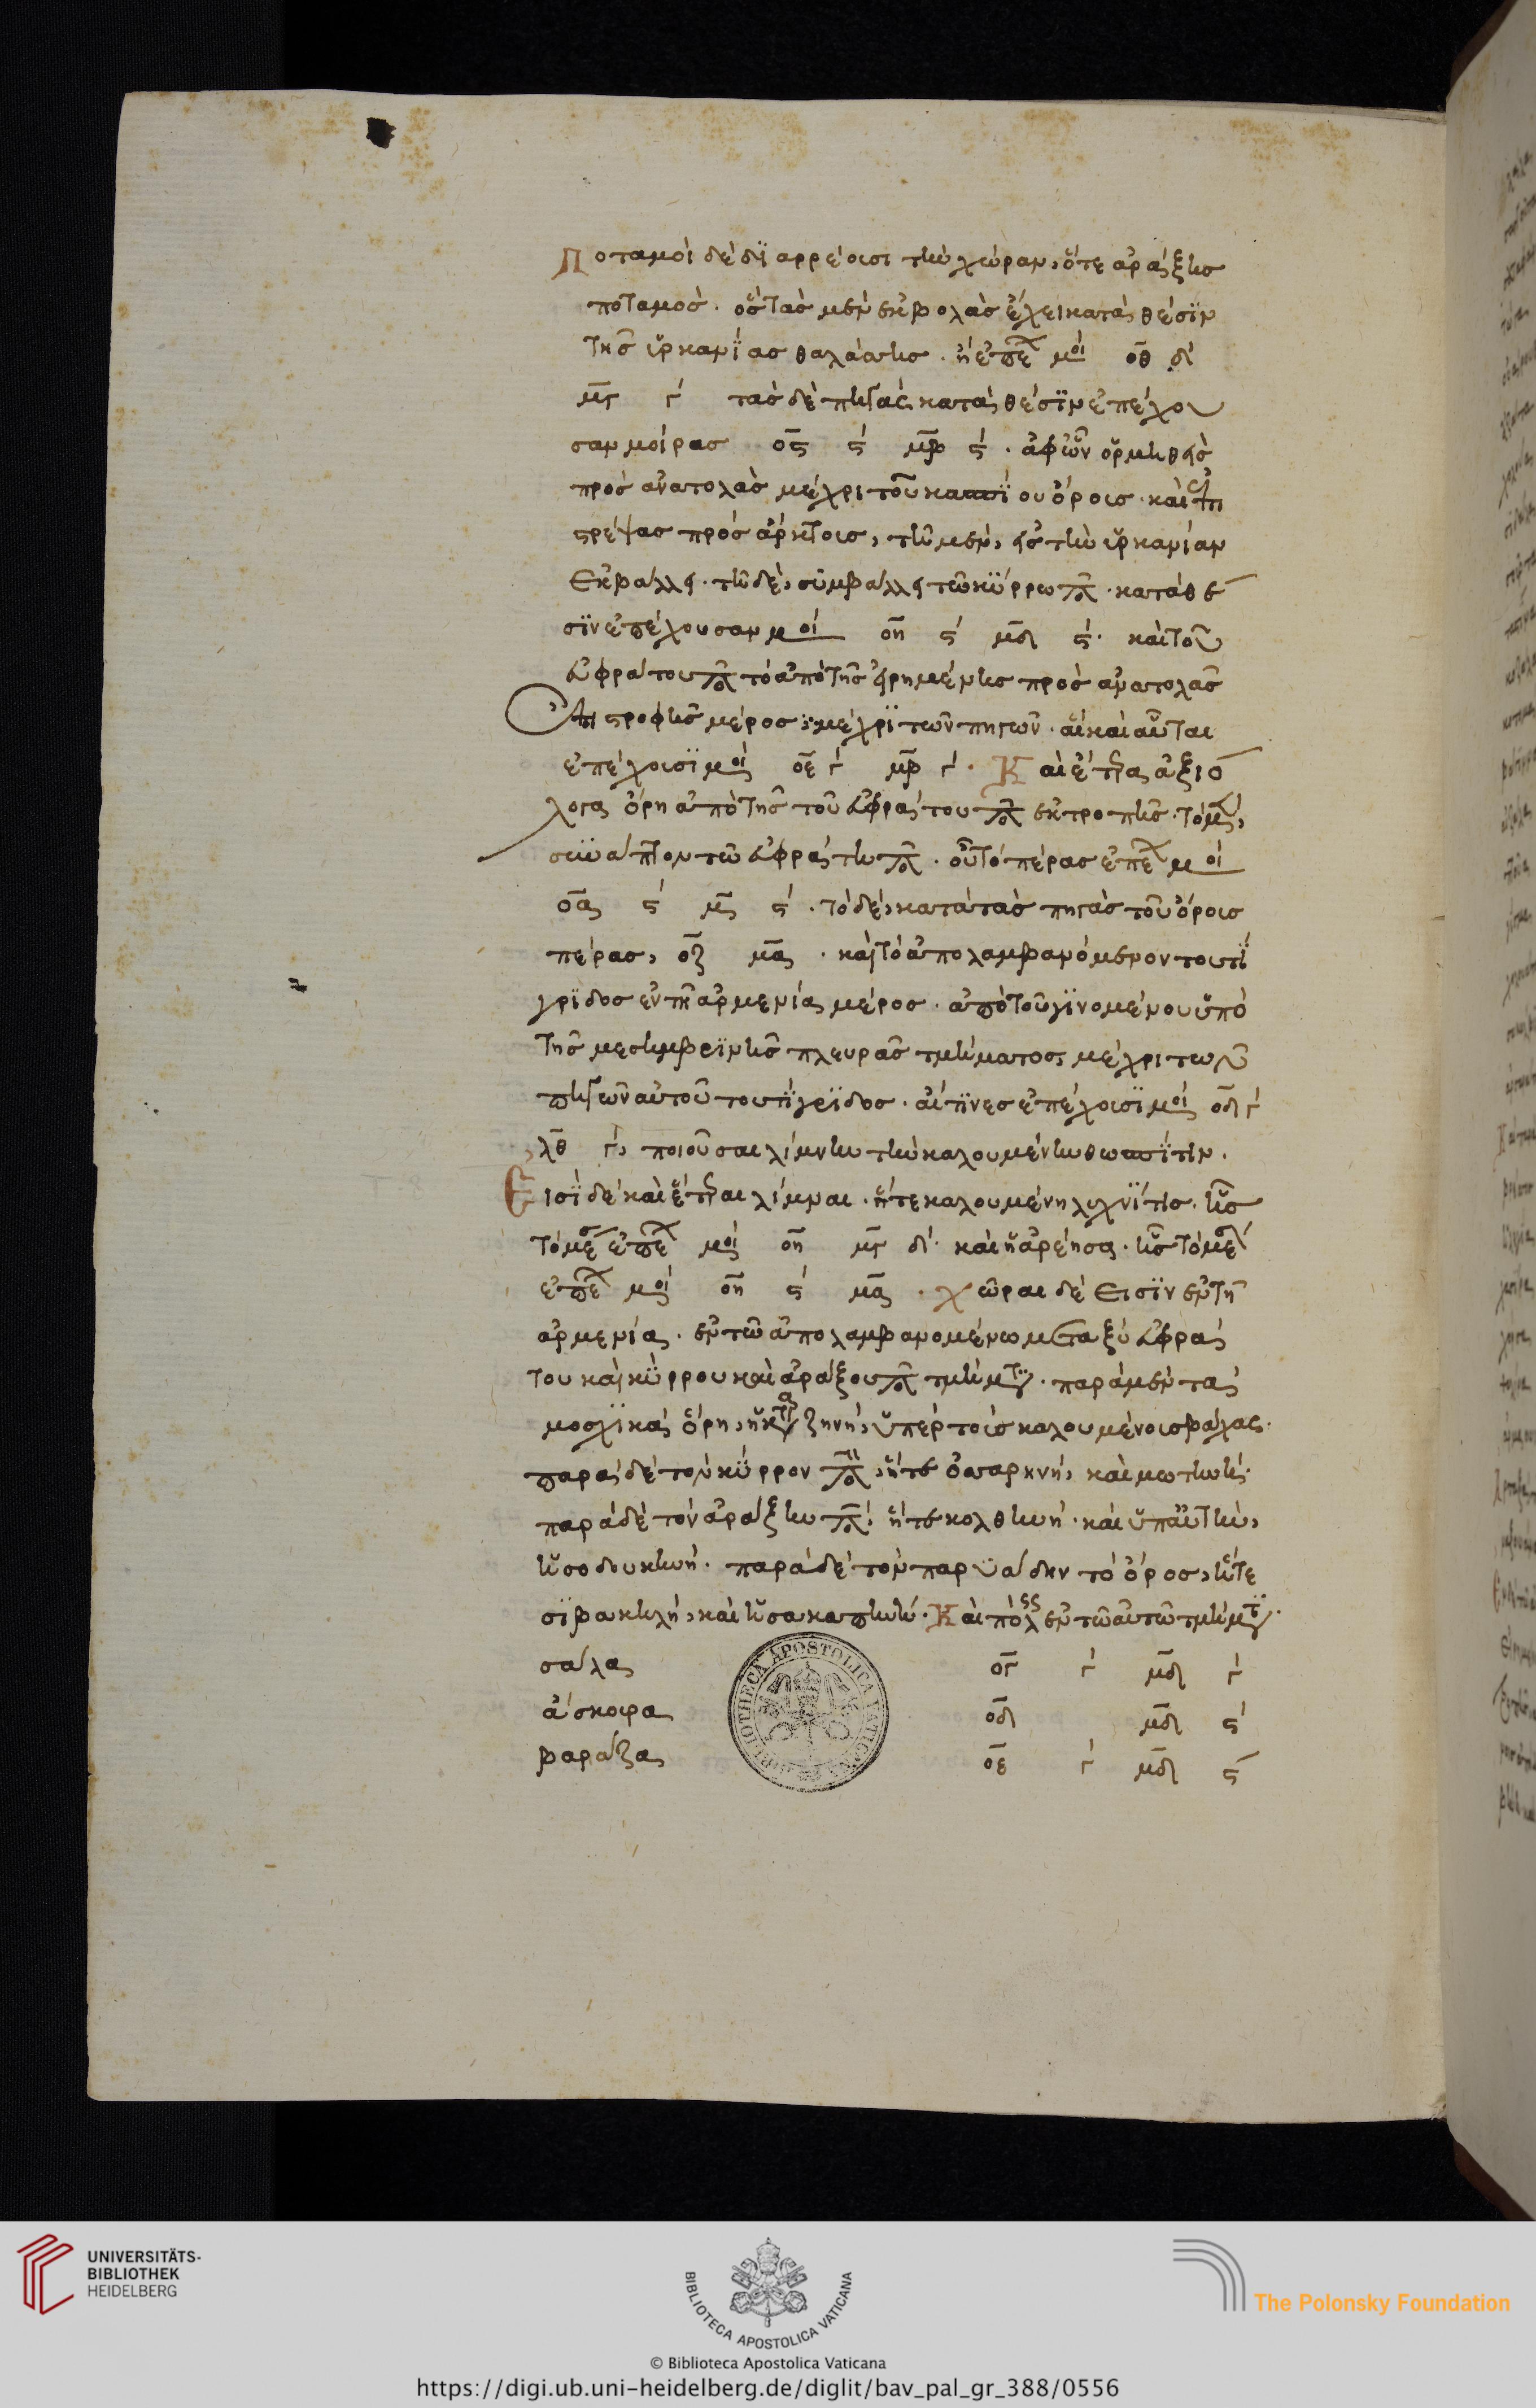 Ποταμοὶ δὲ δϊαρρέουσι τὴν χώραν, ὅτε ἀράξης
ποταμὸς. ὃς τὰς μὲν ἐκβολὰς ἔχει κατὰ θέσϊν
τῆς ὑρκανϊας θαλάσσης. ἣ ἐπε͞χ μοί ο͞θ δί
μ͞γ γί τὰς δὲ πηγὰς κατὰ θέσϊν ἐπέχου
σαν μοίρας ο͞ς ςί μ͞β ςί. ἀφὧν ὁρμηθεὶς
πρὸς ἀνατολὰς μέχρι τοῦ κασπϊου ὄρους. καὶ ἐπι
στρέψας πρὸς ἄρκτους, τῆ μὲν, εἰς τὴν ὑρκανίαν
ἐκβάλλει. τῆ δὲ, συμβάλλει τῶ κύρρω π͞ο. κατὰ θέ
σϊν ἐπέχουσαν μοί ο͞η ςί μ͞δ ςί. καὶ τοῦ
εὐφράτου π͞ο τὸ ἀπὸ τῆς εἰρημένης πρὸς ἀνατολὰς
ἐπιστροφῆς μέρος μέχρϊ τῶν πηγῶν. αἳ καὶ αὗται
ἐπέχουσϊ μοί ο͞ε γί μ͞β γί. Καὶ ἑτέρα ἀξιό
λογα ὄρη ἀπὸ τῆς τοῦ εὐφράτου π͞ο ἐκτροπῆς. τὸ μὲν
συνάπτον τῶ εὐφράτη π͞ο. οὗ τὸ πέρας ἐπε͞χ μοί
ο͞α ςί μ͞ ςί. τὸ δὲ κατὰ τὰς πηγὰς τοῦ ὄρους
πέρας, ο͞ζ μ͞α. καὶ τὸ ἀπολαμβανόμενον τοῦ τϊ
γρϊδος ἐν τῆ ἀρμενία μέρος. ἀπὸ τοῦ γϊνομένου ὑπὸ
τῆς μεσημβρϊνῆς πλευρᾶς τμήματος μέχρι τῶν
πηγῶν αὐτοῦ τοῦ τϊγρϊδος. αἵτϊνες ἐπέχουσϊ μοί ο͞δ γί
λ͞θ γί, ποιοῦσαι λίμνην τὴν καλουμένην θωσπϊτιν.
Εἰσϊ δὲ καὶ ἕτεραι λίμναι. ἥτε καλουμένη λυχνϊτις. ἧς
τὸ μέσον ἐπε͞χ μοί ο͞η μ͞γ δί. καὶ ἡ ἀρέησα. ἧς τὸ μέσον
ἐπε͞χ μοί ο͞η ςί μ͞α. χῶραι δέ εισϊν ἐν τῆ
ἀρμενία. ἐν τῶ ἀπολαμβανομένω μεταξὺ εὐφρά
του καὶ κύρρου καὶ ἀράξου π͞ο τμήματι. παρὰ μὲν τὰ
μοσχϊκὰ ὄρη, ἡ καταρζηνή, ὑπὲρ τοὺς καλουμένους βόχας.
παρὰ δὲ τὸν κύρρον π͞ο, ἥτε ὀσαρηνή, καὶ μωτηνή.
παρὰ δὲ τὸν ἀράξην π͞ο, ἥτε κολθηνή. καὶ ὑπ' αὐτὴν,
ἡ σοδουκηνή. παρὰ δὲ τὸν παρυάδην τὸ ὄρος, ἥτε
σϊρακηλή, καὶ ἡ σακαπηνή. Καὶ πόλεις ἐν τῶ αὐτῶ τμήματι.
σάλα ο͞γ γί μ͞δ γί
ἄσκουρα ο͞δ μ͞δ ςί
βαράζα ο͞ε γί μ͞δ ς
BIBLIOTHECA APOSTOLICA VATICANA
UNIVERSITÄTS-
BIBLIOTHEK
HEIDELBERG
BIBLIOTECA APOSTOLICA VATICANA
The Polonsky Foundation
© Biblioteca Apostolica Vaticana
https://digi.ub.uni-heidelberg.de/diglit/bav_pal_gr_388/0556